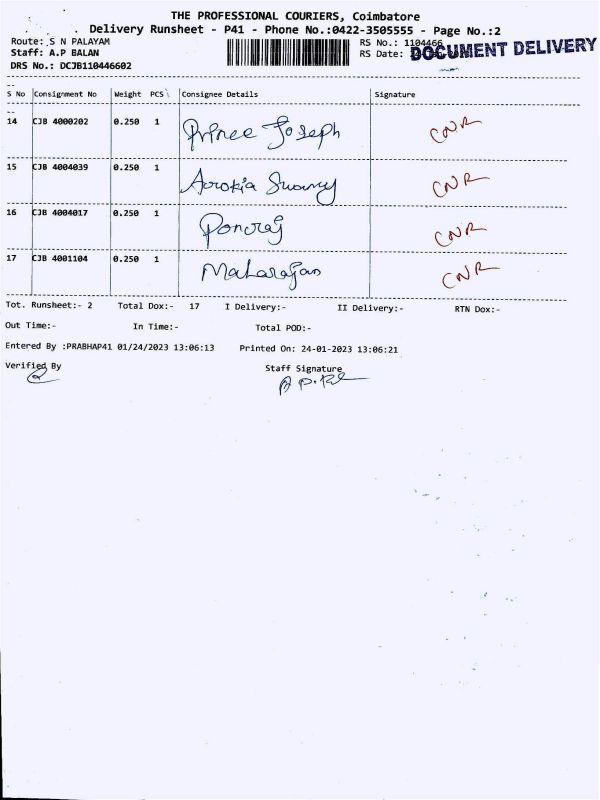 THE PROFESSIONAL COURIERS, Coimbatore
Delivery Runsheet - P41 - Phone No.:0422-3505555 - Page No.:2
Route: S N PALAYAM
RS No.: 1104466
Staff: A.P BALAN
RS Date:
DOCUMENT DELIVERY
DRS No.: DCJB110446602
S No Consignment No Weight PCS Consignee Details Signature
14 CJB 4000202 0.250 1 Prince Joseph CNR
15 CJB 4004039 0.250 1 Arokia Swamy CNR
16 CJB 4004017 0.250 1 Ponraj CNR
17 CJB 4001104 0.250 1 Maharajan CNR
Tot. Runsheet:- 2 Total Dox:- 17 I Delivery:- II Delivery:- RTN Dox:-
Out Time:- In Time:- Total POD:-
Entered By :PRABHAP41 01/24/2023 13:06:13 Printed On: 24-01-2023 13:06:21
Verified By Staff Signature